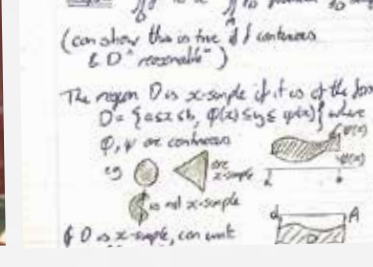 (can show this is true if f continuous
& D "reasonable")
The region D is x-simple if it is of the form
D = {a≤x≤b, φ(x)≤y≤ψ(x)} where
φ, ψ are continuous
eg are x-simple
ψ(x)
φ(x)
is not x-simple
If D is x-simple, can write
d
A
D